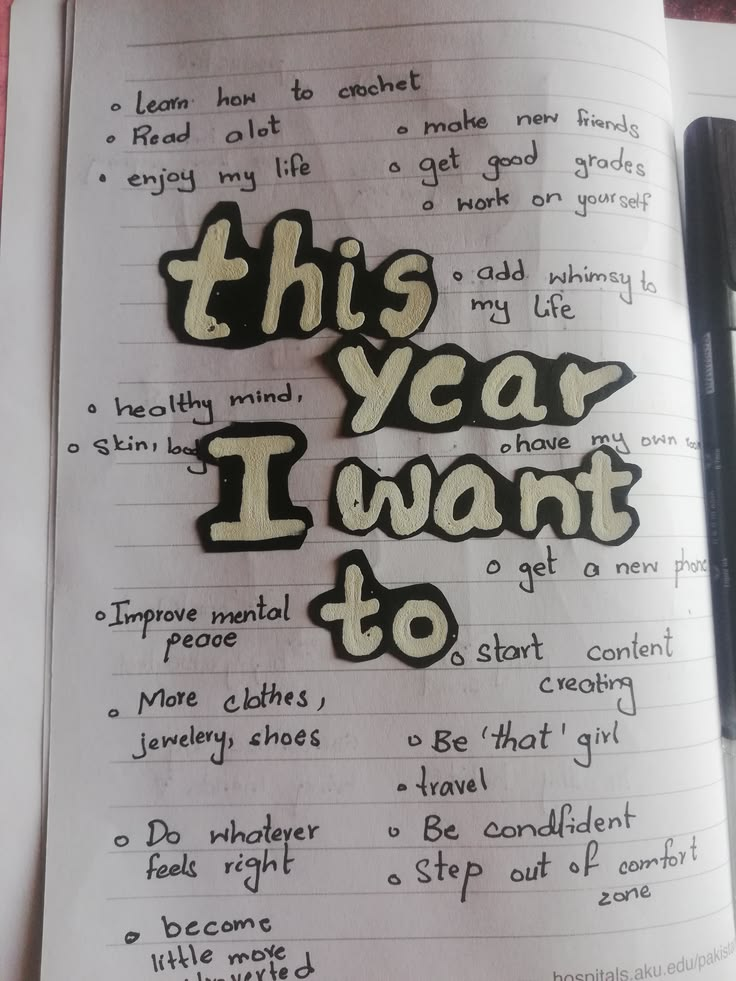 • learn how to crochet
• Read alot
• make new friends
• enjoy my life
• get good grades
• work on yourself
this
• add whimsy to
my life
year
• healthy mind,
• skin,
• have my own
I want
• get a new phone
to
• Improve mental
peace
• start content
creating
• More clothes,
jewelery, shoes
• Be 'that' girl
• travel
• Do whatever
feels right
• Be condfident
• Step out of comfort
zone
• become
little more
hospitals.aku.edu/pakista